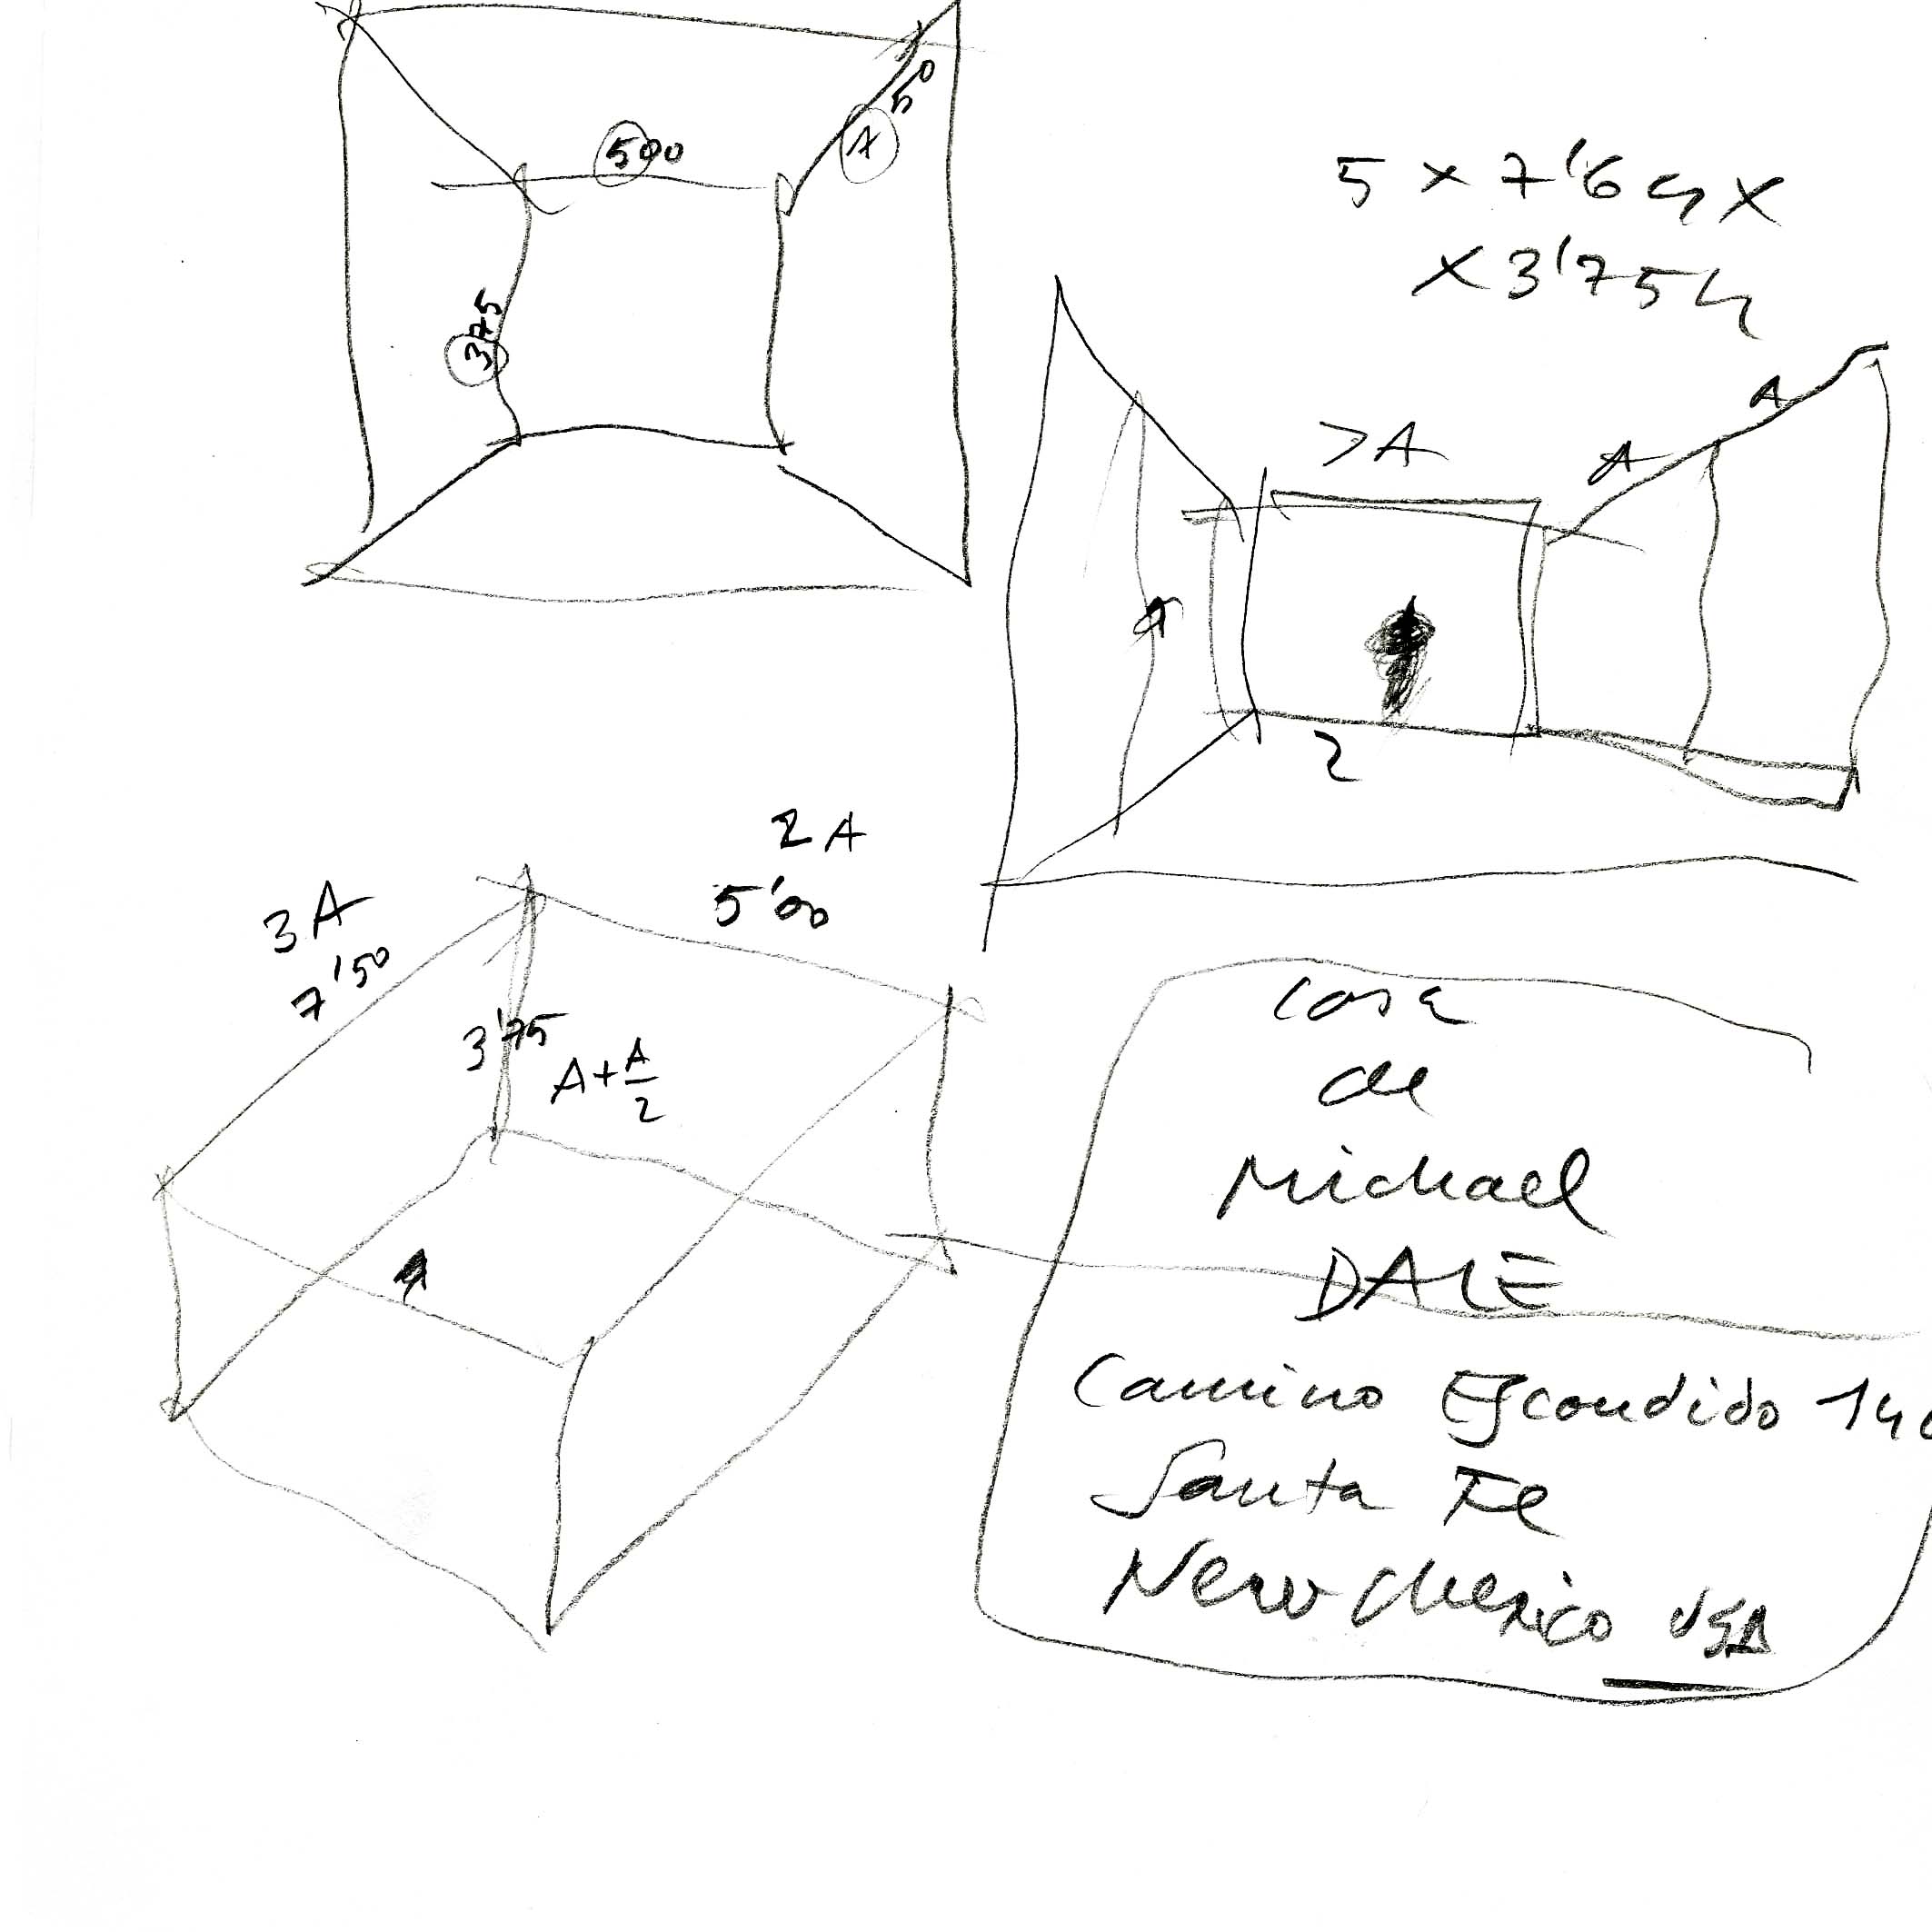 500
7 50
375
5 x 7'64 x
x 3'75 h
>A
A
A
A
2
2 A
5'00
3 A
7'50
3'75
A + A/2
A
Casa
de
Michael
DALE
Camino Escondido
Santa Fe
New Mexico USA